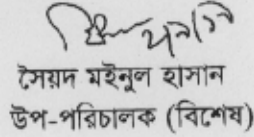 সৈয়দ মইনুল হাসান
উপ-পরিচালক (বিশেষ)